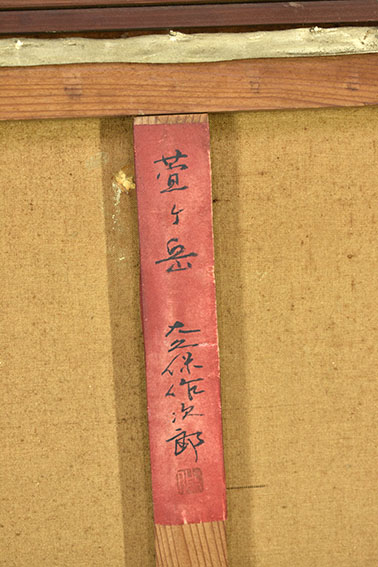 萱ヶ岳 大久保作次郎